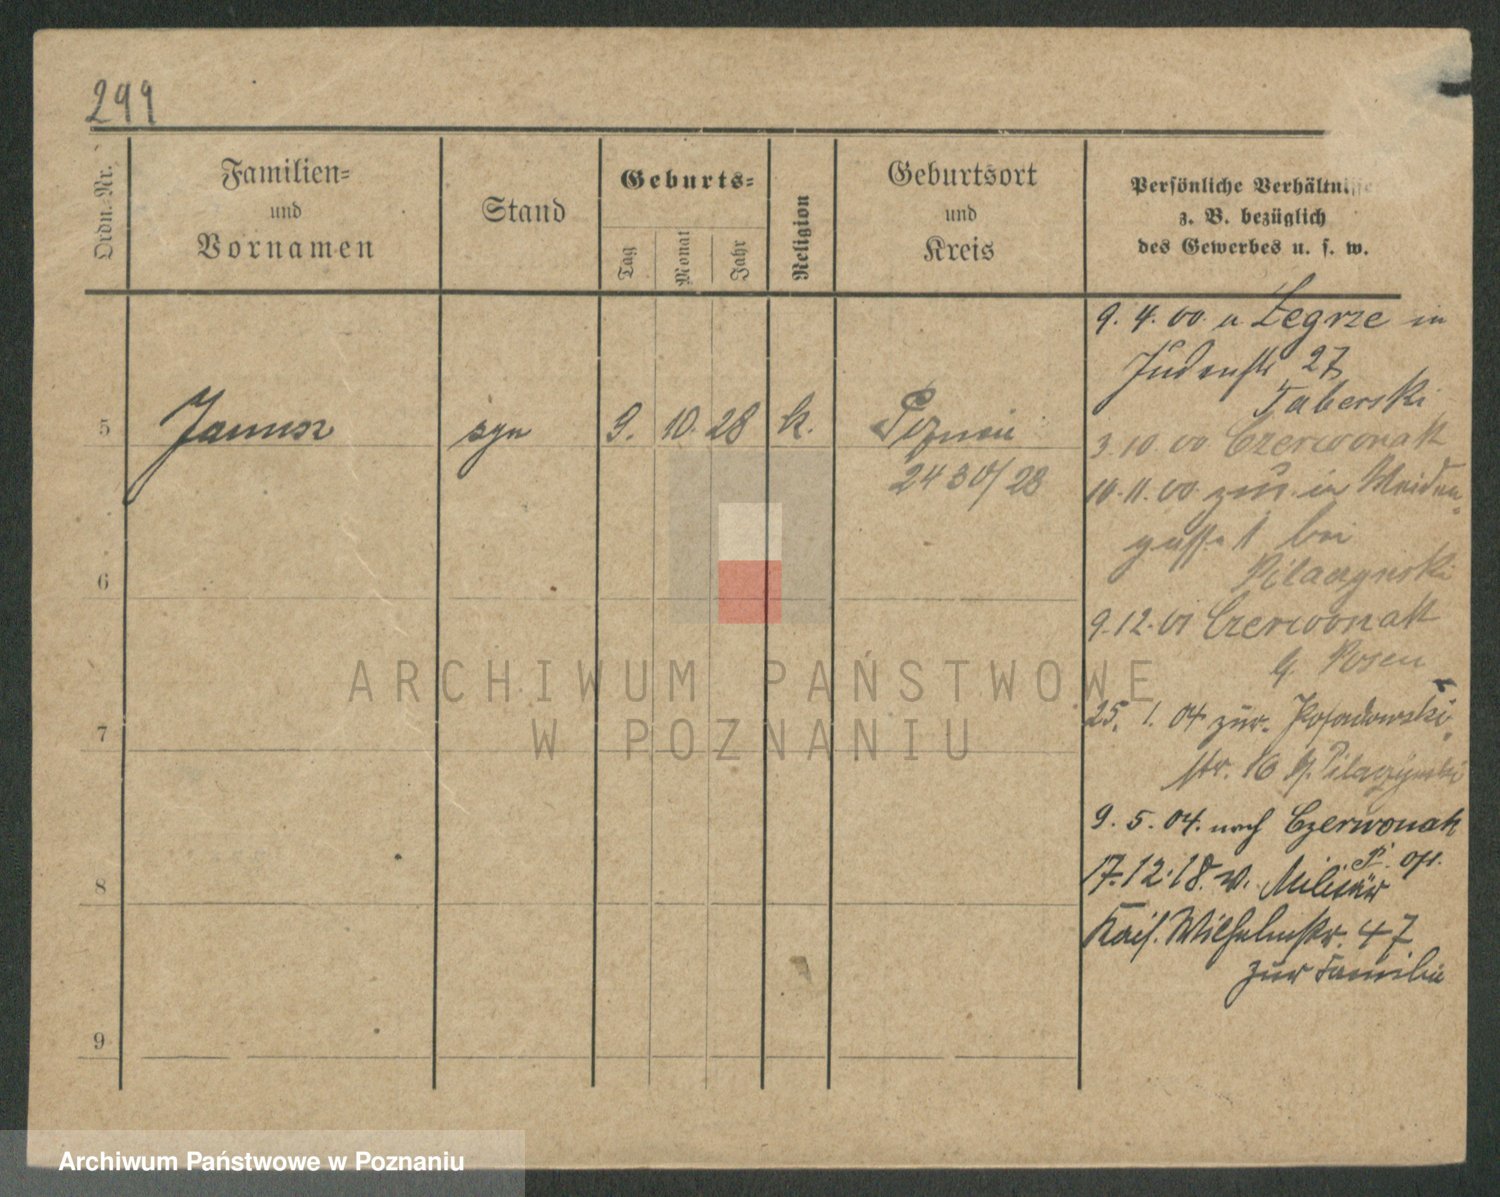 299
Ordn.-Nr.
Familien-
und
Vornamen
Stand
Geburts-
Tag
Monat
Jahr
Religion
Geburtsort
und
Kreis
Persönliche Verhältnisse
z. B. bezüglich
des Gewerbes u. s. w.
5
Janusz
syn
9.
10.
28
k.
Poznań
2430/28
6
7
8
9
9. 4. 00. n Zegrze in
Judenstr 27
Taberski
3. 10. 00 Czerwonak
10. 11. 00 zur. in Weiden-
gasse 1 bei
Pilaczynski
9. 12. 01 Czerwonak
Posen
25. 1. 04 zur. Posadowski-
str. 10 b/ Pilaczynski
9. 5. 04. nach Czerwonak
P. Ost.
17. 12. 18. v. Militär
Kais. Wilhelmstr. 47
zur Familie
ARCHIWUM PAŃSTWOWE
W POZNANIU
Archiwum Państwowe w Poznaniu